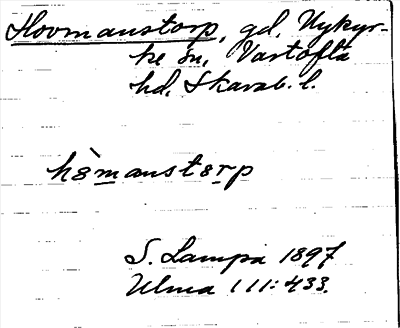 Hovmanstorp, gd, Nykyr-
ke sn, Vartofta
hd, Skarab. l.
hòmanstorp
S. Lampa 1897
Ulma 111:433.